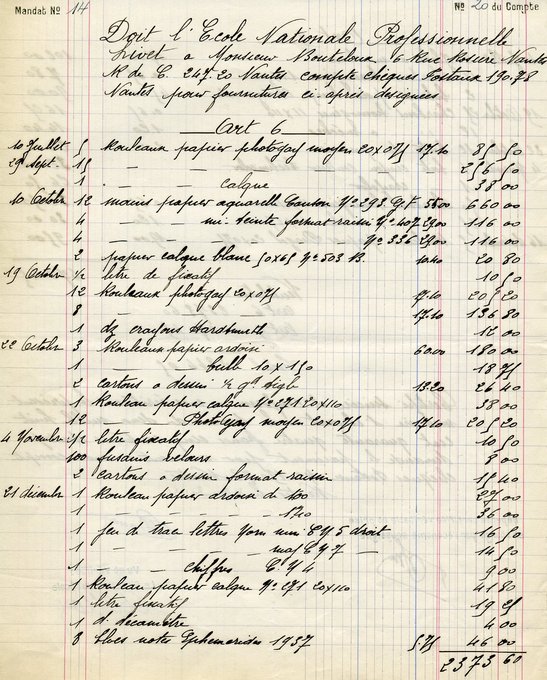 Mandat Nº 14 Nº 20 du Compte
Doit l'Ecole Nationale Professionnelle
Livet à Monsieur Bouteloux, 6 Rue Rosière Nantes
R. de C. 247.20 Nantes compte chèques Postaux 190.78
Nantes pour fournitures ci-après désignées
Art 6
10 Juillet 5 Rouleaux papier photogay moyen 20x075 17.10 85 50
29 Sept. 15 — — — 256 50
1 — — calque 38 00
10 Octobre 12 mains papier aquarelle Canson Nº 293 G.F 55.00 660 00
4 — — mi-teinte format raisin Nº 407 29.00 116 00
4 — — — Nº 336 29.00 116 00
2 papier calque blanc 50x65 Nº 503 B 10.40 20 80
19 Octobre 1/2 litre de fixatif 10 50
12 Rouleaux photogay 20x075 17.10 205 20
8 — — 17.10 136 80
1 dz crayons Hardtmuth 12 00
22 Octobre 3 Rouleaux papier ardoisé 60.00 180 00
1 — bulle 10x150 18 75
2 cartons à dessin 1/2 13.20 26 40
1 Rouleau papier calque Nº 271 20x110 38 00
12 — Photogay moyen 20x075 17.10 205 20
4 Novembre 1/2 litre fixatif 10 50
100 fusains velours 8 00
2 cartons à dessin format raisin 15 40
21 décembre 1 Rouleau papier ardoisé de 100 27 00
1 — — — 140 36 00
1 jeu de trace lettres min C Y 5 droit 16 50
1 — — — maj C Y 7 — 14 50
1 — — chiffres C Y 4 9 00
1 Rouleau papier calque Nº 271 20x110 41 80
1 litre fixatif 19 25
1 d. décamètre 4 00
8 blocs notes Ephemerides 1937 5.75 46 00
2373 60